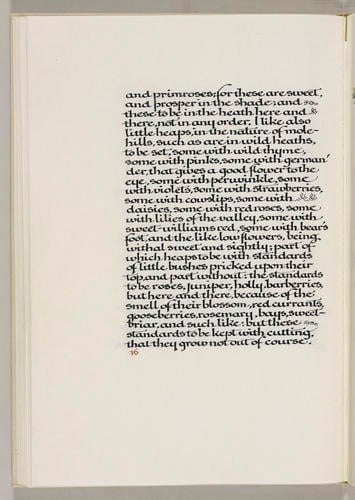 and primroses; for these are sweet,
and prosper in the shade; and
these to be in the heath here and
there, not in any order. I like also
little heaps, in the nature of mole-
hills, such as are in wild heaths,
to be set, some with wild thyme,
some with pinks, some with german-
der, that gives a good flower to the
eye, some with periwinkle, some
with violets, some with strawberries,
some with cowslips, some with
daisies, some with red roses, some
with lilies of the valley, some with
sweet-williams red, some with bear's
foot, and the like low flowers, being
withal sweet and sightly; part of
which heaps to be with standards
of little bushes pricked upon their
top, and part without: the standards
to be roses, juniper, holly, barberries,
but here and there, because of the
smell of their blossom, red currants,
gooseberries, rosemary, bays, sweet-
briar, and such like: but these
standards to be kept with cutting,
that they grow not out of course.
16